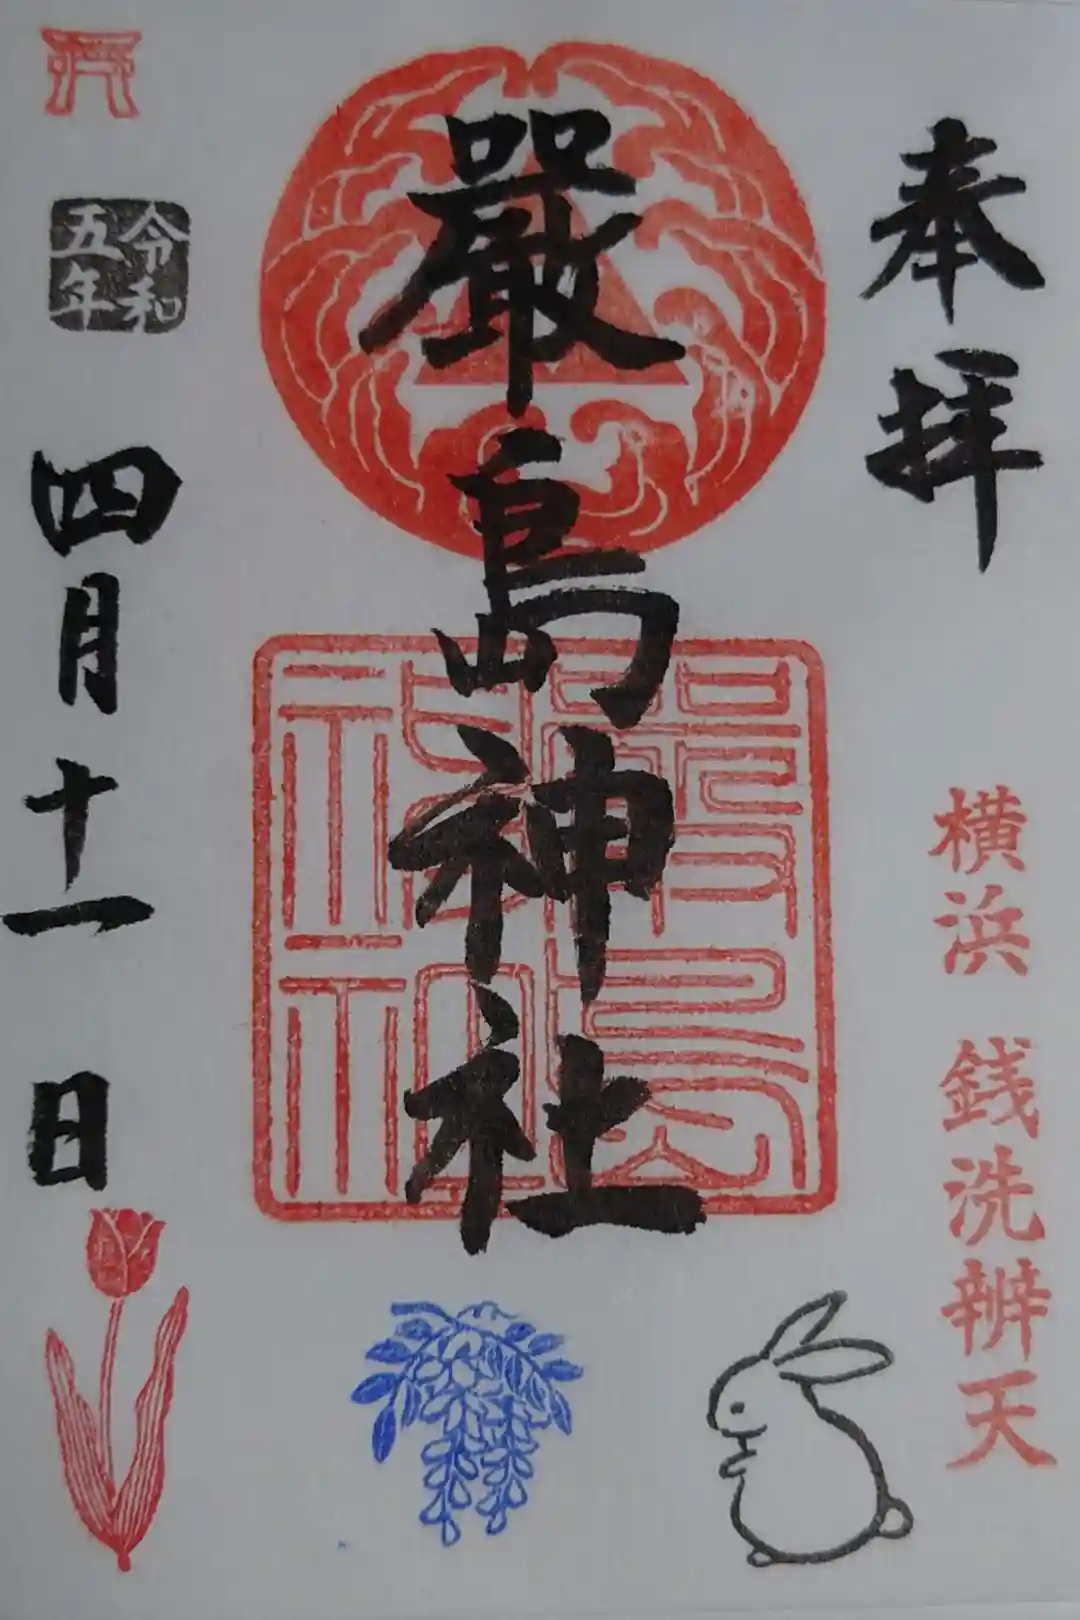 奉拝
横浜 銭洗辨天
嚴島神社
嚴島
神社
令和
五年
四月十一日